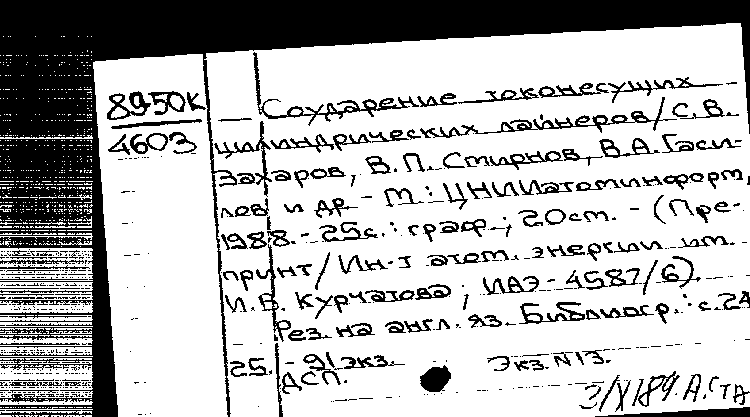 8950К
4603
Соударение токонесущих
цилиндрических лайнеров/С.В.
Захаров, В.П. Смирнов, В.А. Гаси-
лов и др. - М.: ЦНИИатоминформ,
1988. - 25с.: граф.; 20см. - (Пре-
принт/Ин-т атом. энергии им.
И.В. Курчатова; ИАЭ-4587/6).
Рез. на англ. яз. Библиогр.: с.24
25. - 91 экз.
Экз. N13.
ДСП.